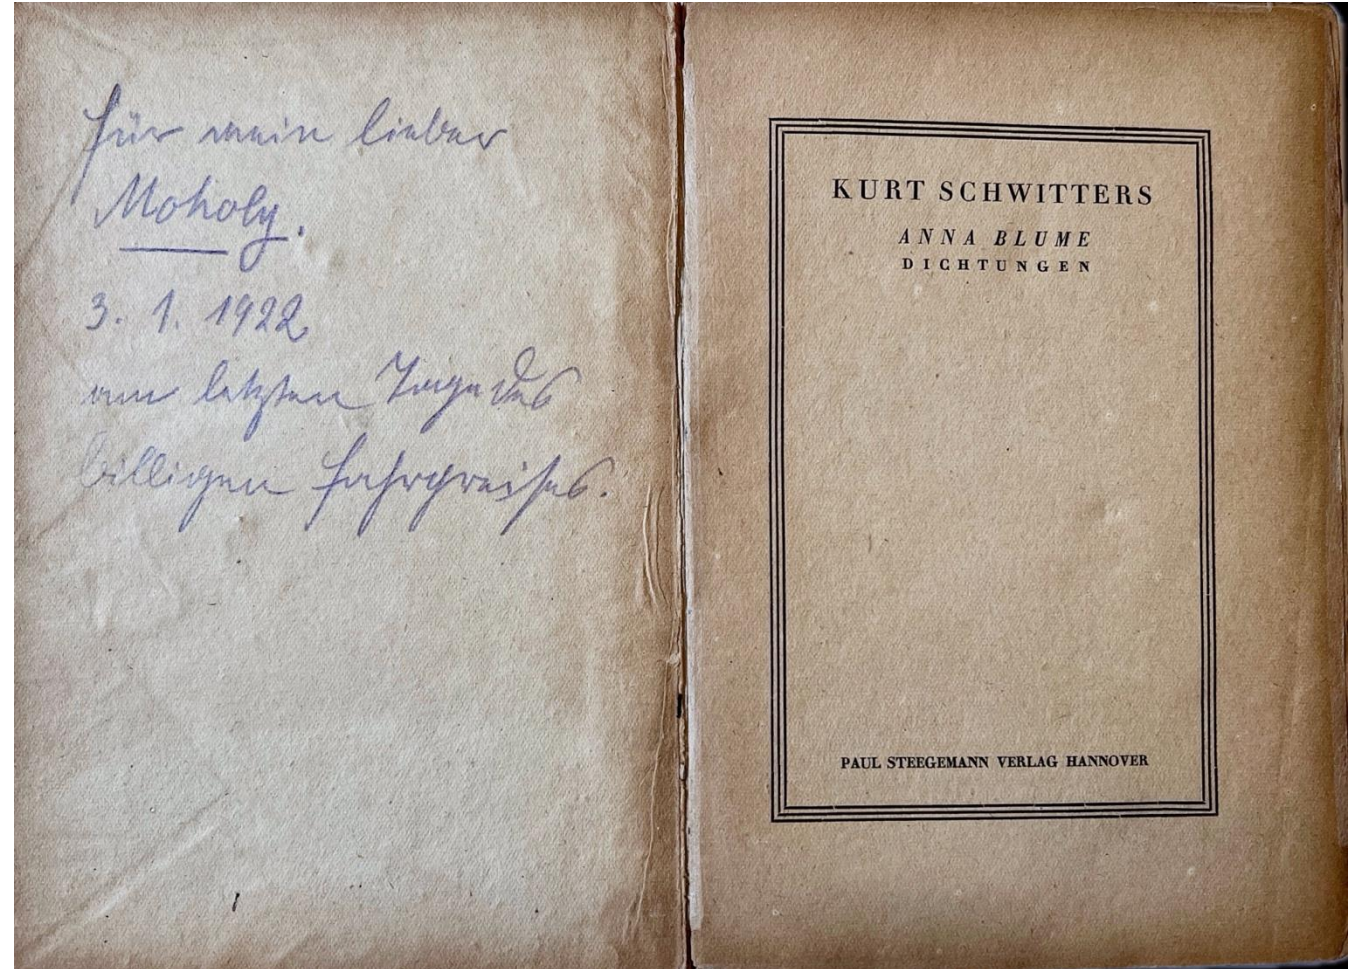 für mein lieber
Moholy.
3. 1. 1922
am letzten Tage des
billigen Fahrpreises.
KURT SCHWITTERS
ANNA BLUME
DICHTUNGEN
PAUL STEEGEMANN VERLAG HANNOVER